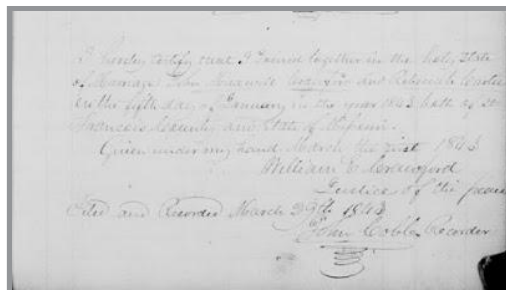 I hereby certify that I Joined together in the holy state
of Marriage John
on the fifth day of January in the year 1843 both of St
Francois County and State of Missouri.
Given under my hand March the first 1843
William C Crawford
Justice of the peace
Filed and Recorded March 29th 1843
John Cobb Recorder